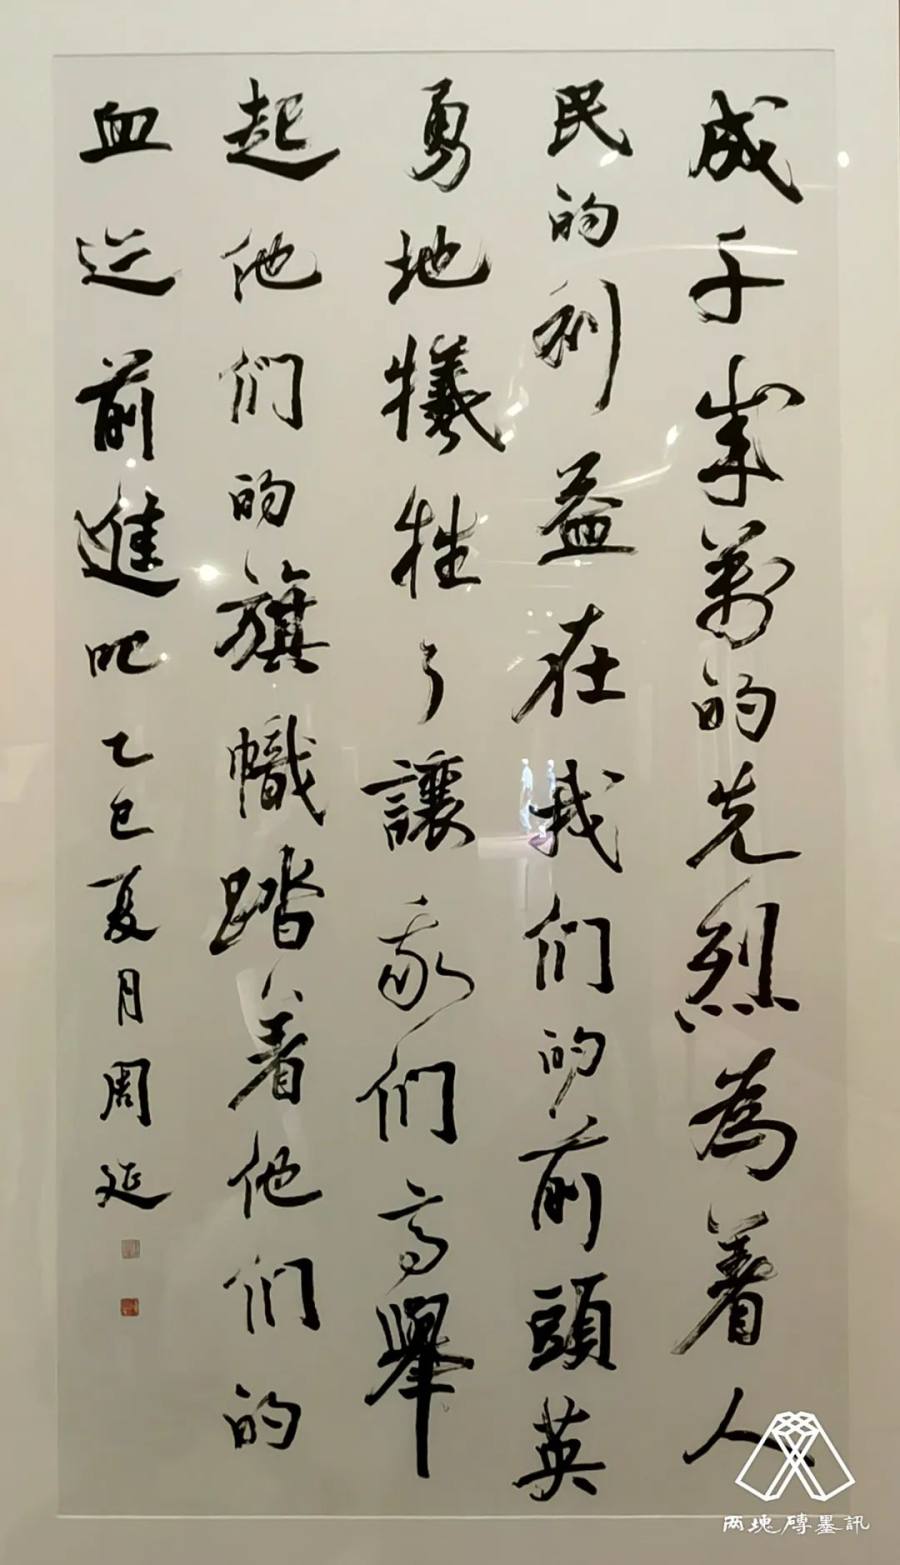 成千成萬的先烈為着人
民的利益在我們的前頭英
勇地犧牲了讓我們高舉
起他們的旗幟踏着他們的
血迹前進吧乙巳夏月周延
两塊磚墨訊